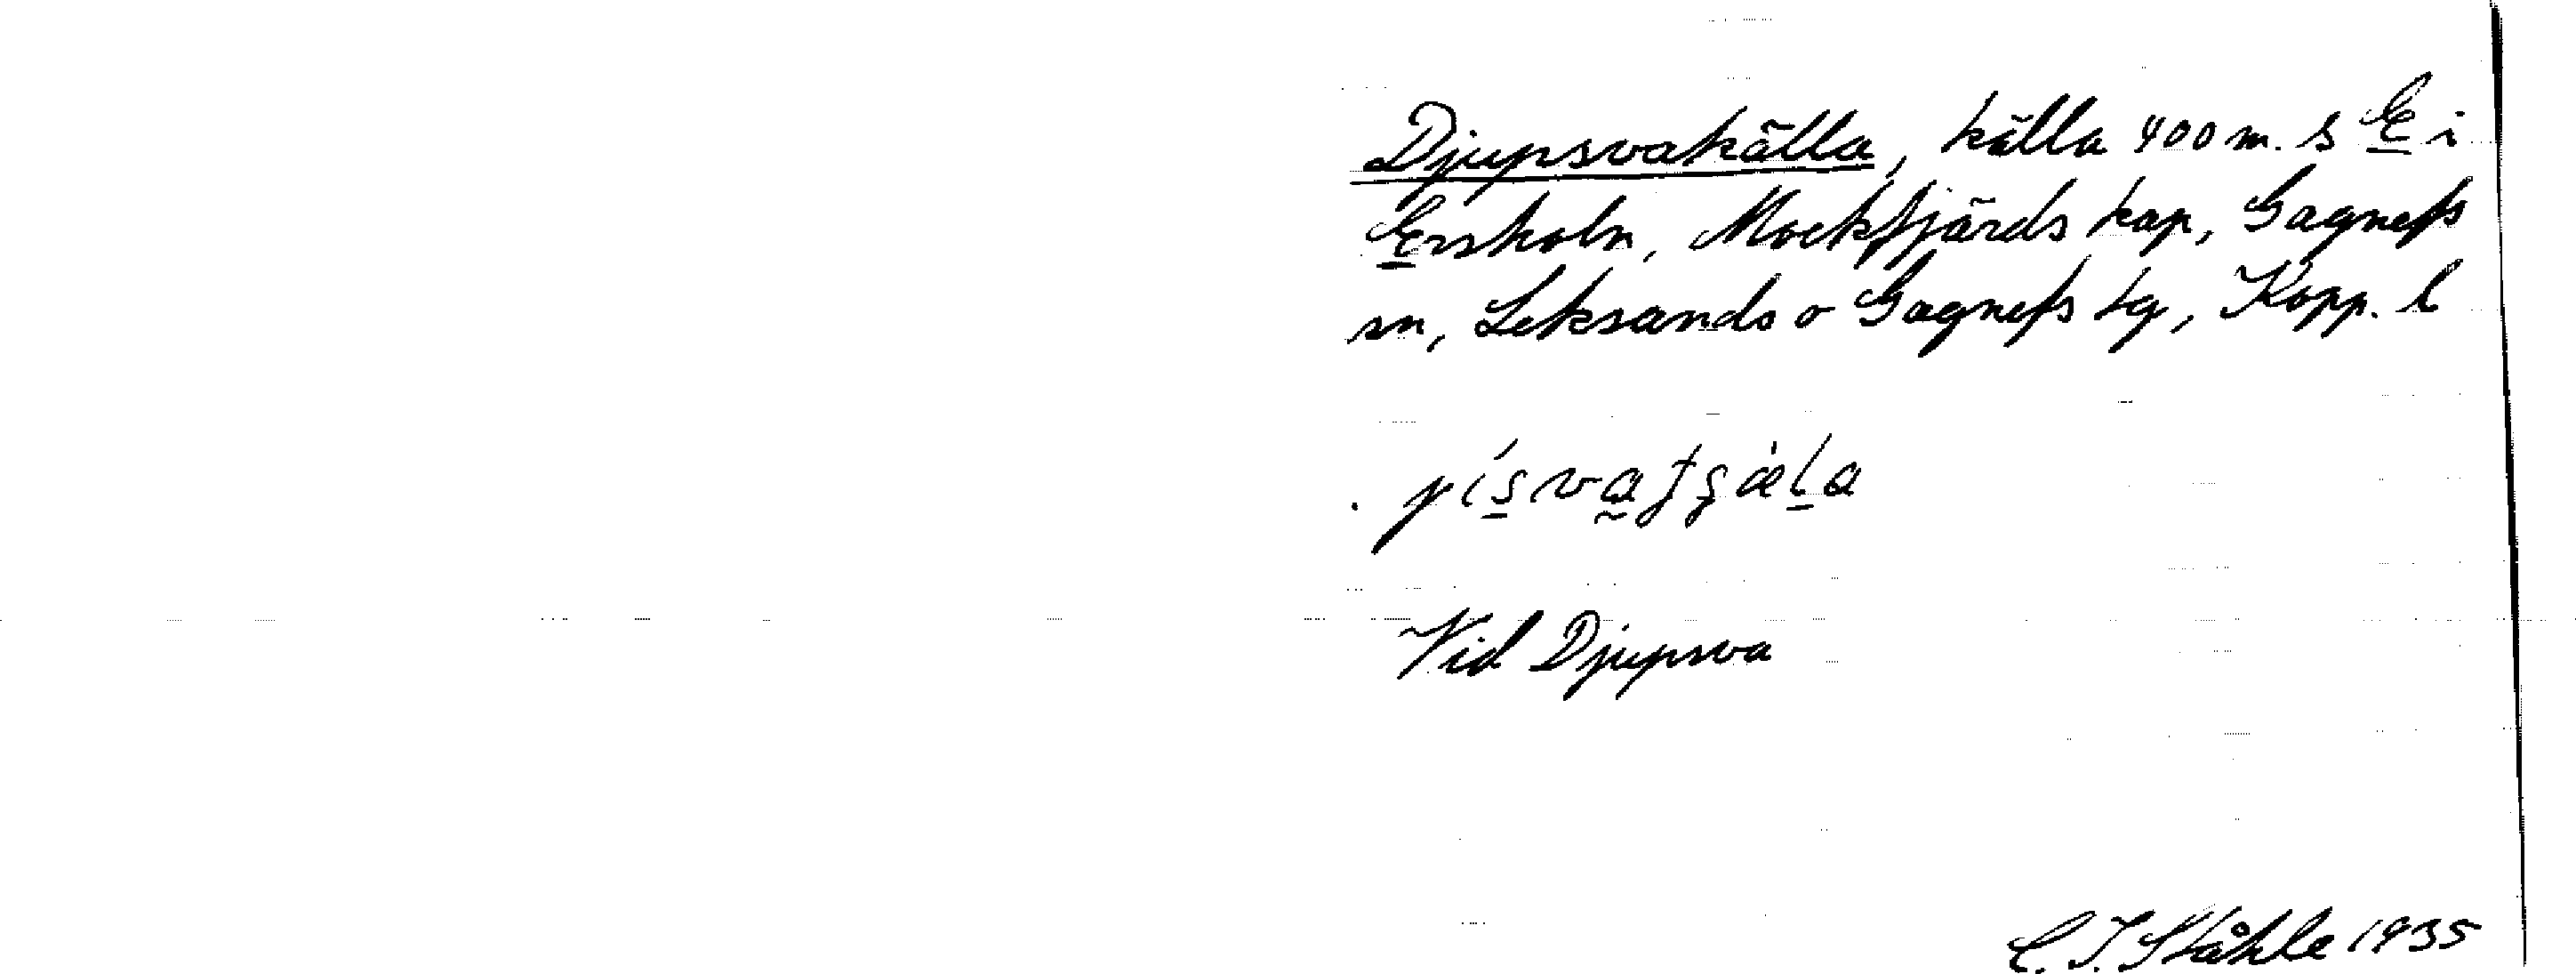 Djupsvakälla, källa 400 m. S E i
Ersholn, Mockfjärds kap, Gagnefs
sn, Leksands o Gagnefs tg, Kopp. l
Vid Djupsva
C. I. Ståhle 1935